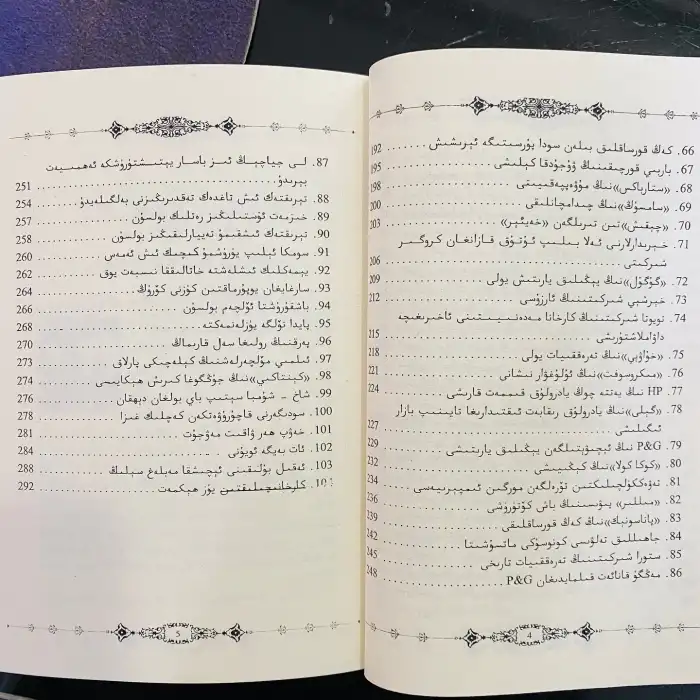 66. كەڭ قورساقلىق بىلەن سودا پۇرسىتىگە ئېرىشىش ........ 192
67. بارىي قورچىقىنىڭ ۋۇجۇدقا كېلىشى ........ 195
68. «ستارباكس»نىڭ مۇۋەپپەقىيىتى ........ 198
69. «سامسۇڭ»نىڭ چىدامچانلىقى ........ 200
70. «چېقىش»تىن تىرىلگەن «خەيئېر» ........ 203
71. خېرىدارلارنى ئەلا بىلىپ ئۇتۇق قازانغان كروگېر
شىركىتى ........ 206
72. «گۇگۇل»نىڭ يېڭىلىق يارىتىش يولى ........ 209
73. خېرشېي شىركىتىنىڭ ئارزۇسى ........ 212
74. تويوتا شىركىتىنىڭ كارخانا مەدەنىيىتىنى ئاخىرىغىچە
داۋاملاشتۇرىشى ........ 215
75. «خۇاۋېي»نىڭ تەرەققىيات يولى ........ 218
76. «مىكروسوفت»نىڭ ئۇلۇغۋار نىشانى ........ 221
77. HP نىڭ يەتتە چوڭ يادرولۇق قىممەت قارىشى ........ 224
78. «گېلى»نىڭ يادرولۇق رىقابەت ئىقتىدارىغا تايىنىپ بازار
ئىگىلىشى ........ 227
79. P&G نىڭ ئېچىۋېتىلگەن يېڭىلىق يارىتىشى ........ 229
80. «كوكا كولا»نىڭ كېڭىيىشى ........ 232
81. تەۋەككۈلچىلىكتىن تۆرەلگەن مورگىن ئىمپېرىيەسى ........ 234
82. «مىللىر» پىۋىسىنىڭ باش كۆتۈرۈشى ........ 236
83. «پاناسونىك»نىڭ كەڭ قورساقلىقى ........ 239
84. جاھىللىق تەلۋىسى كونوسۇكى ماتسۇشىتا ........ 242
85. ستورا شىركىتىنىڭ تەرەققىيات تارىخى ........ 245
86. مەڭگۈ قانائەت قىلمايدىغان P&G ........ 248
4
87. لى جياچېڭ ئىز باسار يېتىشتۈرۈشكە ئەھمىيەت
بېرىدۇ ........ 251
88. تىرىقتەك ئىش تاغدەك تەقدىرىڭىزنى بەلگىلەيدۇ ........ 254
89. خىزمەت ئۈستىلىڭىز رەتلىك بولسۇن ........ 257
90. تىرىقتەك ئىشقىمۇ تەييارلىقىڭىز بولسۇن ........ 258
91. سومكا ئېلىپ يۈرۈشمۇ كىچىك ئىش ئەمەس ........ 260
92. يېمەكلىك ئىشلەشتە خاتالىققا نىسبەت يوق ........ 262
93. سارغايغان يوپۇرماقتىن كۈزنى كۆرۈڭ ........ 264
94. باشقۇرۇشتا ئۆلچەم بولسۇن ........ 266
95. پايدا نۆلگە يۈزلەنمەكتە ........ 268
96. پەرقنىڭ رولىغا سەل قارىماڭ ........ 270
97. ئىلمىي مۆلچەرلەشنىڭ كېلەچىكى پارلاق ........ 273
98. «كېنتاكىي»نىڭ جۇڭگوغا كىرىش ھېكايىسى ........ 274
99. شاخ - شۇمبا سېتىپ باي بولغان دېھقان ........ 276
100. سودىگەرنى قاچۇرۇۋەتكەن كەچلىك غىزا ........ 278
101. خەۋپ ھەر ۋاقىت مەۋجۇت ........ 281
102. ئات بەيگە ئويۇنى ........ 284
103. ئەقىل بۇلىقىنى ئېچىشقا مەبلەغ سېلىڭ ........ 288
كارخانىچىلىقتىن يۈز ھېكمەت ........ 292
5